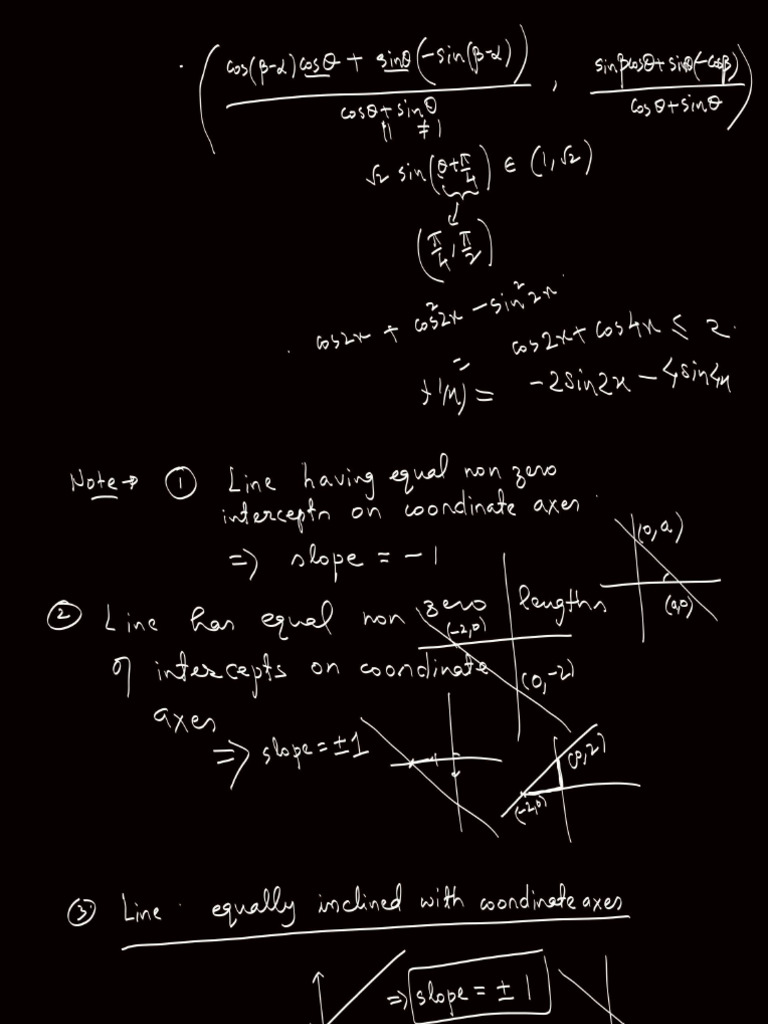 ( cos(β-α)cosθ + sinθ(-sin(β-α)) / cosθ+sinθ , sinβcosθ+sinθ(-cosβ) / cosθ+sinθ )
≠1
√2 sin(θ+π/4) ∈ (1,√2)
(π/4, π/2)
cos2x + cos²2x - sin²2x
= cos2x + cos4x ≤ 2
f'(x) = -2sin2x - 4sin4x
Note → ① Line having equal non zero
intercepts on coordinate axes
=> slope = -1
(0,a)
(a,0)
② Line has equal non zero lengths
(-2,0)
of intercepts on coordinate
(0,-2)
axes
=> slope = ±1
(0,2)
(-2,0)
③ Line equally inclined with coordinate axes
=> slope = ± 1